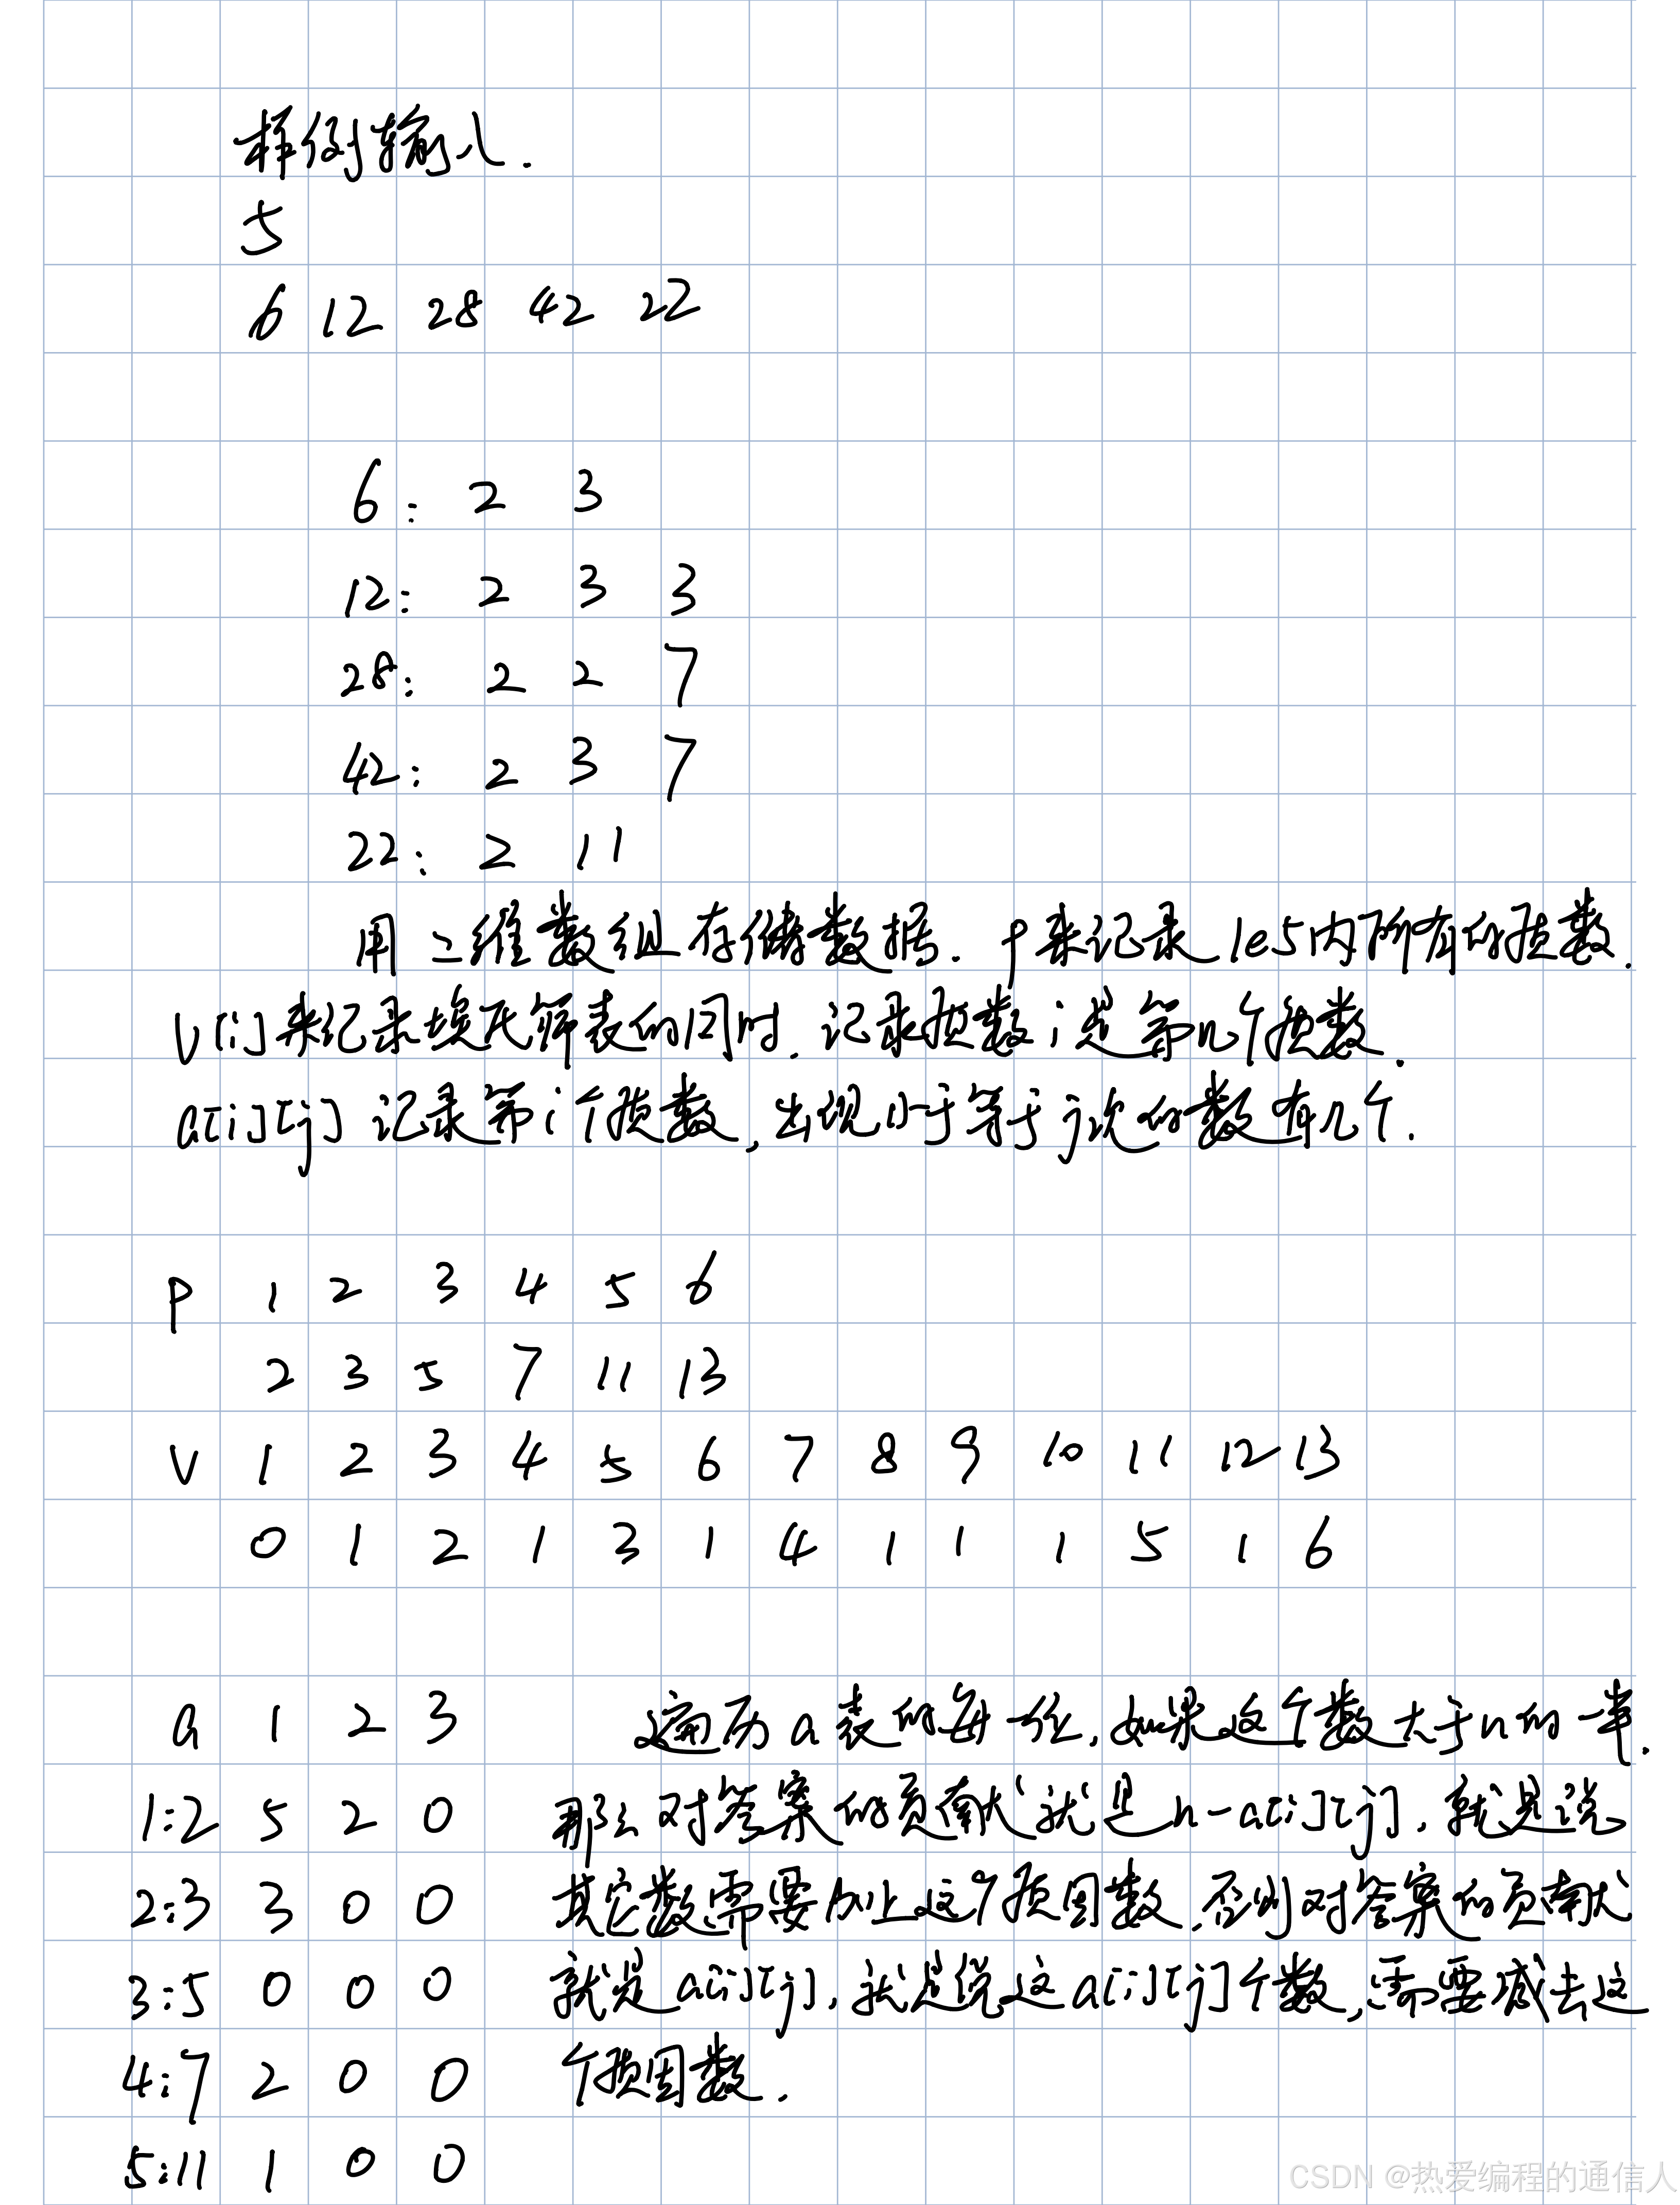 样例输入.
5
6 12 28 42 22
6: 2 3
12: 2 3 3
28: 2 2 7
42: 2 3 7
22: 2 11
用二维数组存储数据. P来记录1e5内所有的质数.
V[i]来纪录埃氏筛表的同时. 记录质数i是第几个质数.
a[i][j] 记录第i个质数, 出现小于等于j次的数有几个.
P 1 2 3 4 5 6
2 3 5 7 11 13
V 1 2 3 4 5 6 7 8 9 10 11 12 13
0 1 2 1 3 1 4 1 1 1 5 1 6
a 1 2 3 遍历a表的每一位, 如果这个数大于n的一半.
1:2 5 2 0 那么对答案的贡献就是n-a[i][j], 就是说
2:3 3 0 0 其它数需要乘上这个质因数, 否则对答案的贡献
3:5 0 0 0 就是a[i][j], 就是说这a[i][j]个数, 需要减去这
4:7 2 0 0 个质因数.
5:11 1 0 0
CSDN @热爱编程的通信人